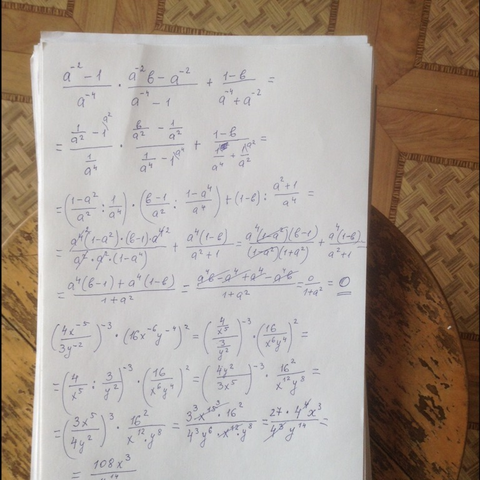 (a⁻² − 1)/a⁻⁴ · (a⁻²в − a⁻²)/(a⁻⁴ − 1) + (1−в)/(a⁻⁴ + a⁻²) =
= (1/a² − 1^{a²})/(1/a⁴) · (в/a² − 1/a²)/(1/a⁴ − 1^{a⁴}) + (1−в)/(1/a⁴ + 1^{a²}/a²) =
= ((1−a²)/a² : 1/a⁴) · ((в−1)/a² : (1−a⁴)/a⁴) + (1−в) : (a²+1)/a⁴ =
= (a⁴(1−a²)·(в−1)·a⁴)/(a²·a²·(1−a⁴)) + a⁴(1−в)/(a²+1) = a⁴(1−a²)(в−1)/((1−a²)(1+a²)) + a⁴(1−в)/(a²+1) =
= (a⁴(в−1) + a⁴(1−в))/(1+a²) = (a⁴в − a⁴ + a⁴ − a⁴в)/(1+a²) = 0/(1+a²) = 0
(4x⁻⁵/3y⁻²)⁻³ · (16x⁻⁶y⁻⁴)² = ((4/x⁵)/(3/y²))⁻³ · (16/(x⁶y⁴))² =
= (4/x⁵ : 3/y²)⁻³ · (16/(x⁶y⁴))² = (4y²/3x⁵)⁻³ · 16²/(x¹²y⁸) =
= (3x⁵/4y²)³ · 16²/(x¹²·y⁸) = (3³x¹⁵·16²)/(4³y⁶·x¹²·y⁸) = (27·4⁴x³)/(4³y¹⁴) =
= 108x³